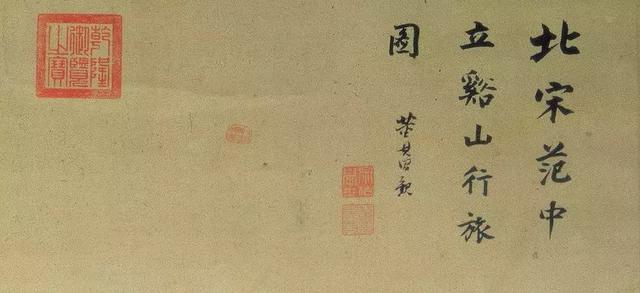 北宋范中
立谿山行旅
圖
董其昌觀
乾隆御覽之寶